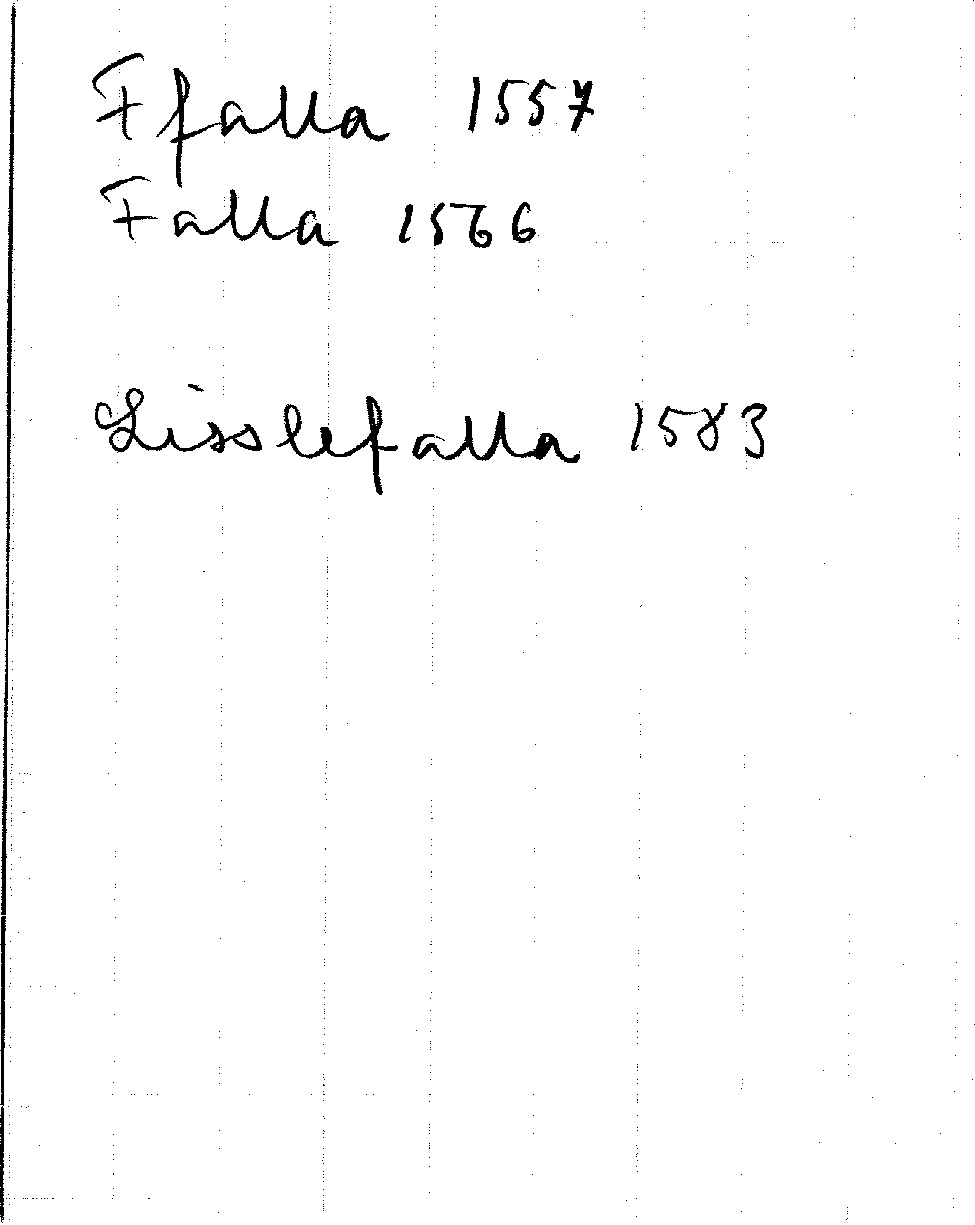 Ffalla 1557
Falla 1566
Lisslefalla 1583